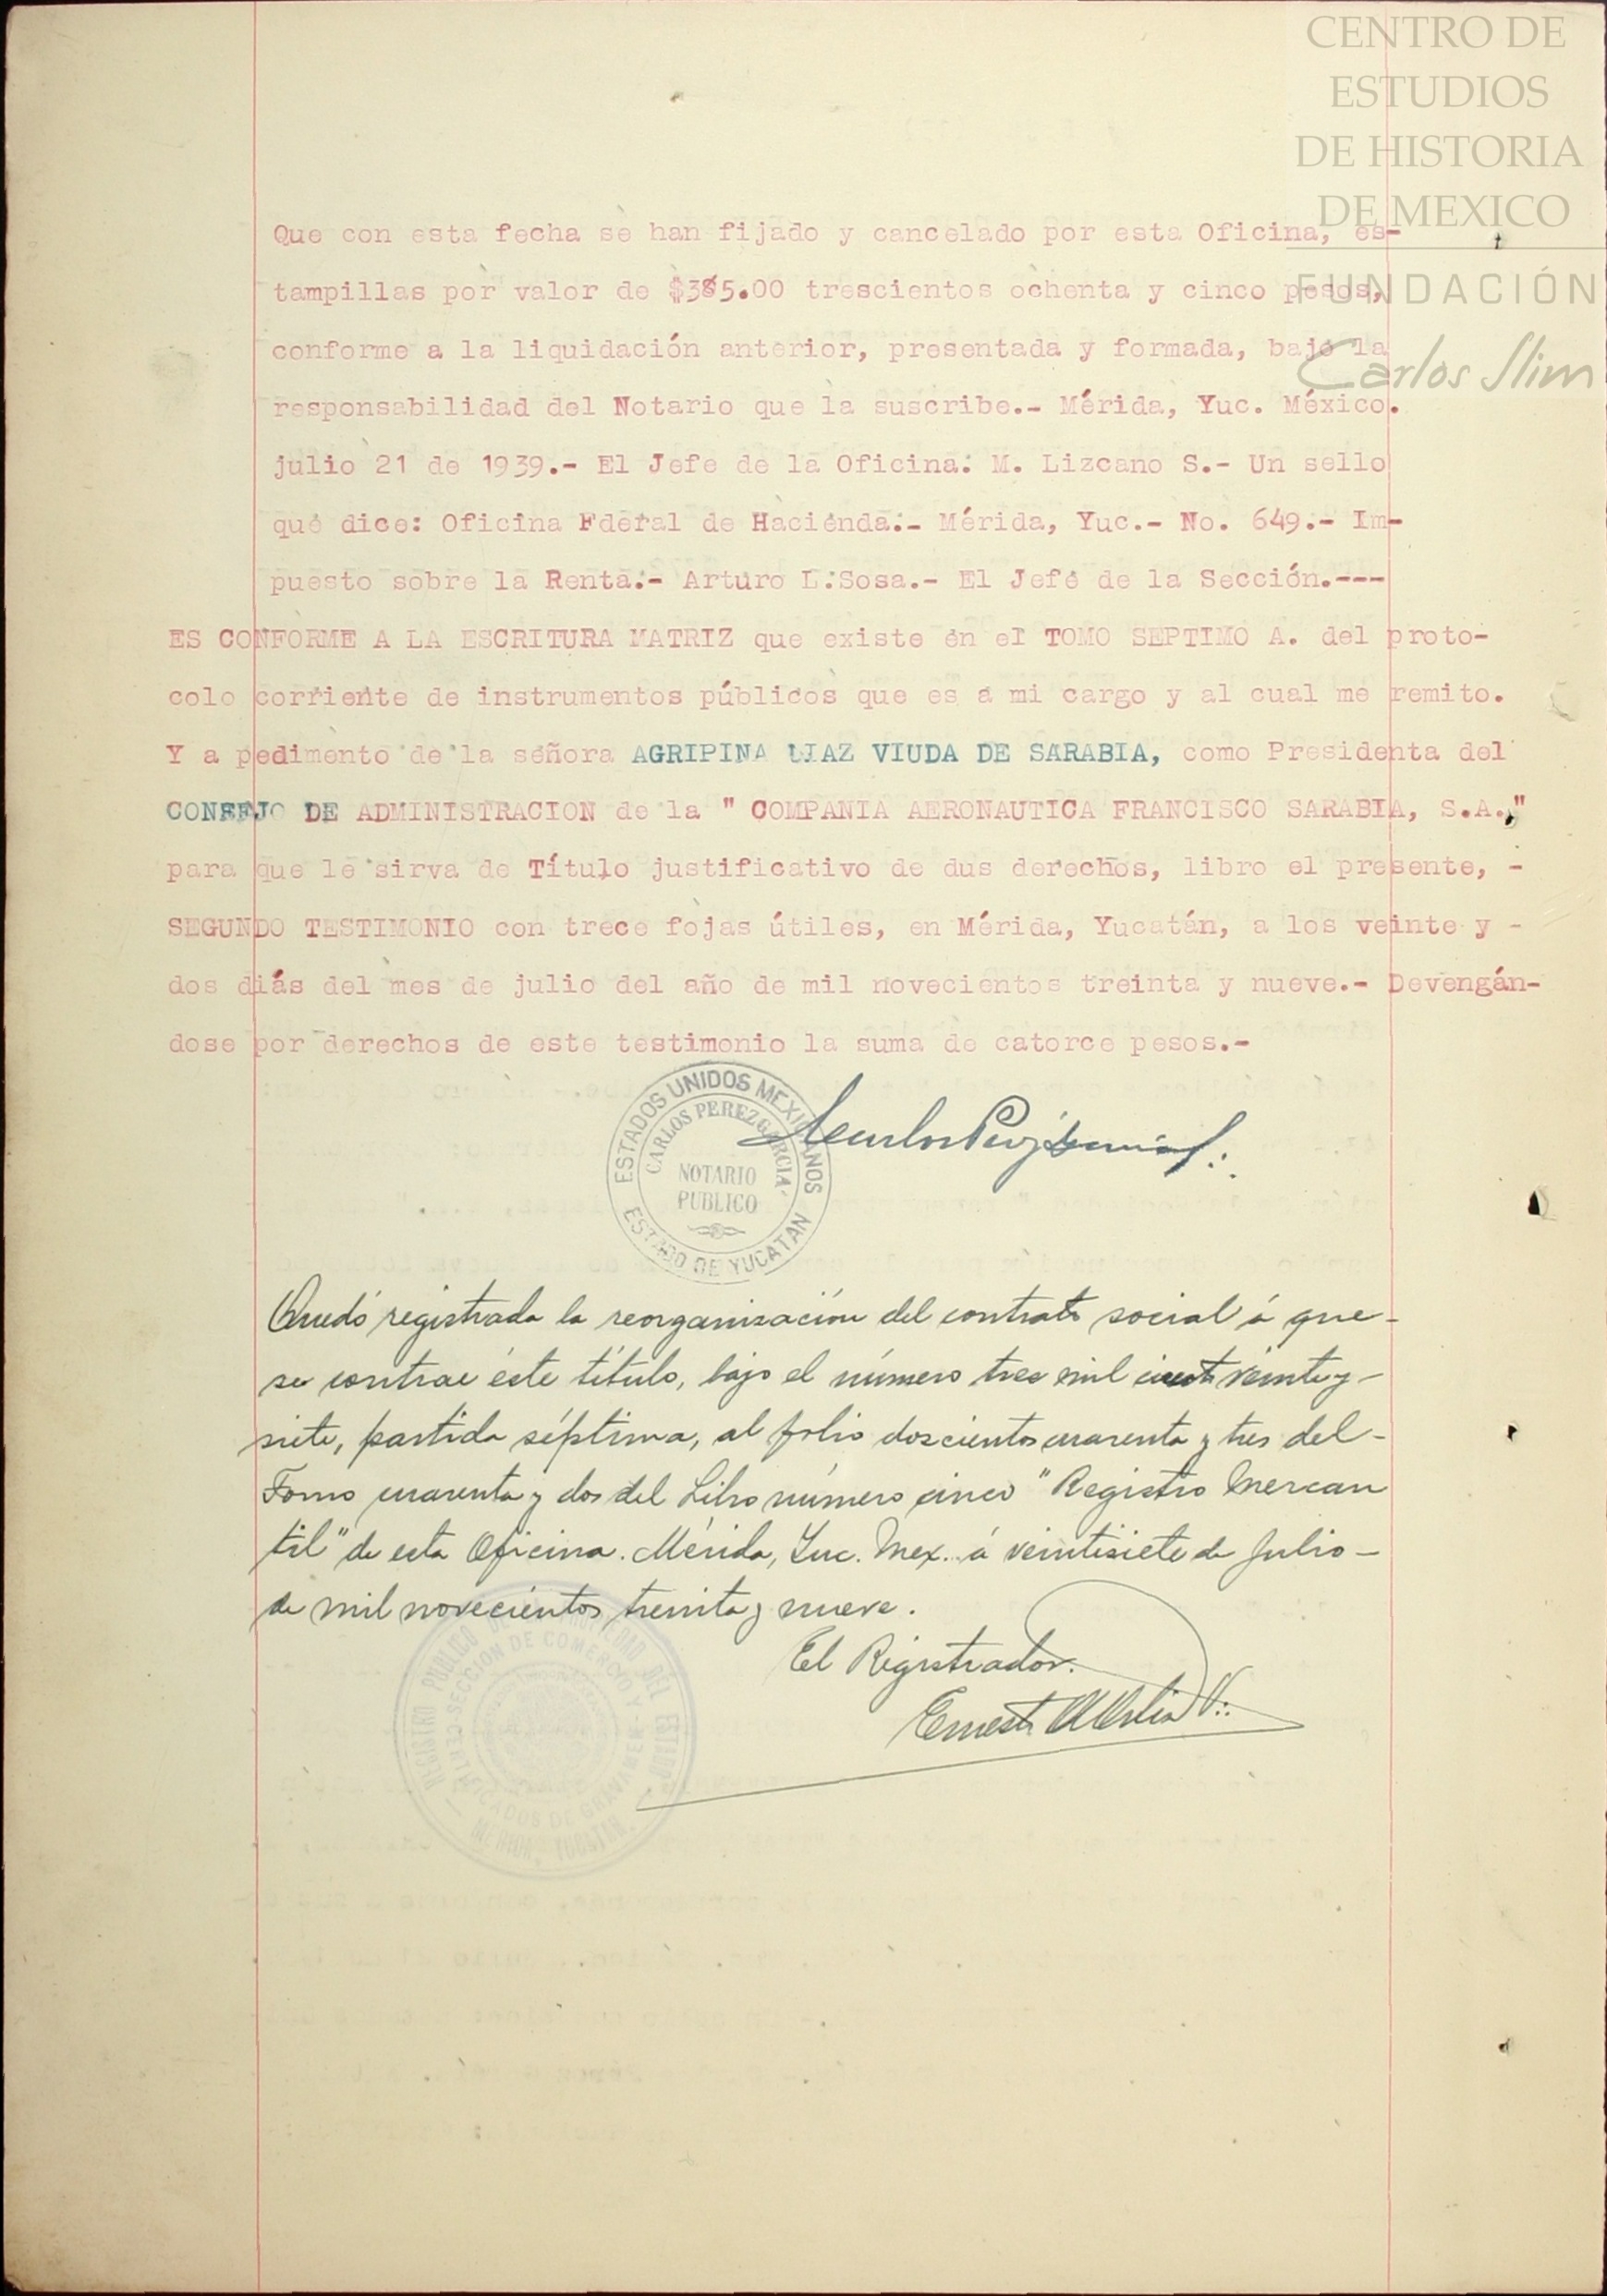 CENTRO DE
ESTUDIOS
DE HISTORIA
DE MEXICO
FUNDACIÓN
Carlos Slim
Que con esta fecha se han fijado y cancelado por esta Oficina, es-
tampillas por valor de $385.00 trescientos ochenta y cinco pesos,
conforme a la liquidación anterior, presentada y formada, bajo la
responsabilidad del Notario que la suscribe.- Mérida, Yuc. México.
julio 21 de 1939.- El Jefe de la Oficina: M. Lizcano S.- Un sello
que dice: Oficina Fderal de Hacienda.- Mérida, Yuc.- No. 649.- Im-
puesto sobre la Renta.- Arturo L.Sosa.- El Jefe de la Sección.---
ES CONFORME A LA ESCRITURA MATRIZ que existe en el TOMO SEPTIMO A. del proto-
colo corriente de instrumentos públicos que es a mi cargo y al cual me remito.
Y a pedimento de la señora AGRIPINA DIAZ VIUDA DE SARABIA, como Presidenta del
CONSEJO DE ADMINISTRACION de la " COMPANIA AERONAUTICA FRANCISCO SARABIA, S.A.,"
para que le sirva de Título justificativo de dus derechos, libro el presente, -
SEGUNDO TESTIMONIO con trece fojas útiles, en Mérida, Yucatán, a los veinte y -
dos diás del mes de julio del año de mil novecientos treinta y nueve.- Devengán-
dose por derechos de este testimonio la suma de catorce pesos.-
ESTADOS UNIDOS MEXICANOS
CARLOS PEREZ GARCIA
NOTARIO
PUBLICO
ESTADO DE YUCATAN
Quedó registrada la reorganización del contrato social á que-
se contrae éste título, bajo el número tres mil ciento veinte y-
siete, partida séptima, al folio doscientos cuarenta y tres del-
Tomo cuarenta y dos del Libro número cinco "Registro Mercan
til" de esta Oficina. Mérida, Yuc. Mex. á veintisiete de Julio-
de mil novecientos treinta y nueve.
El Registrador.
REGISTRO PUBLICO DE LA PROPIEDAD DEL ESTADO
SECCION DE COMERCIO Y
CERTIFICADOS DE GRAVAMEN
MERIDA, YUCATAN.